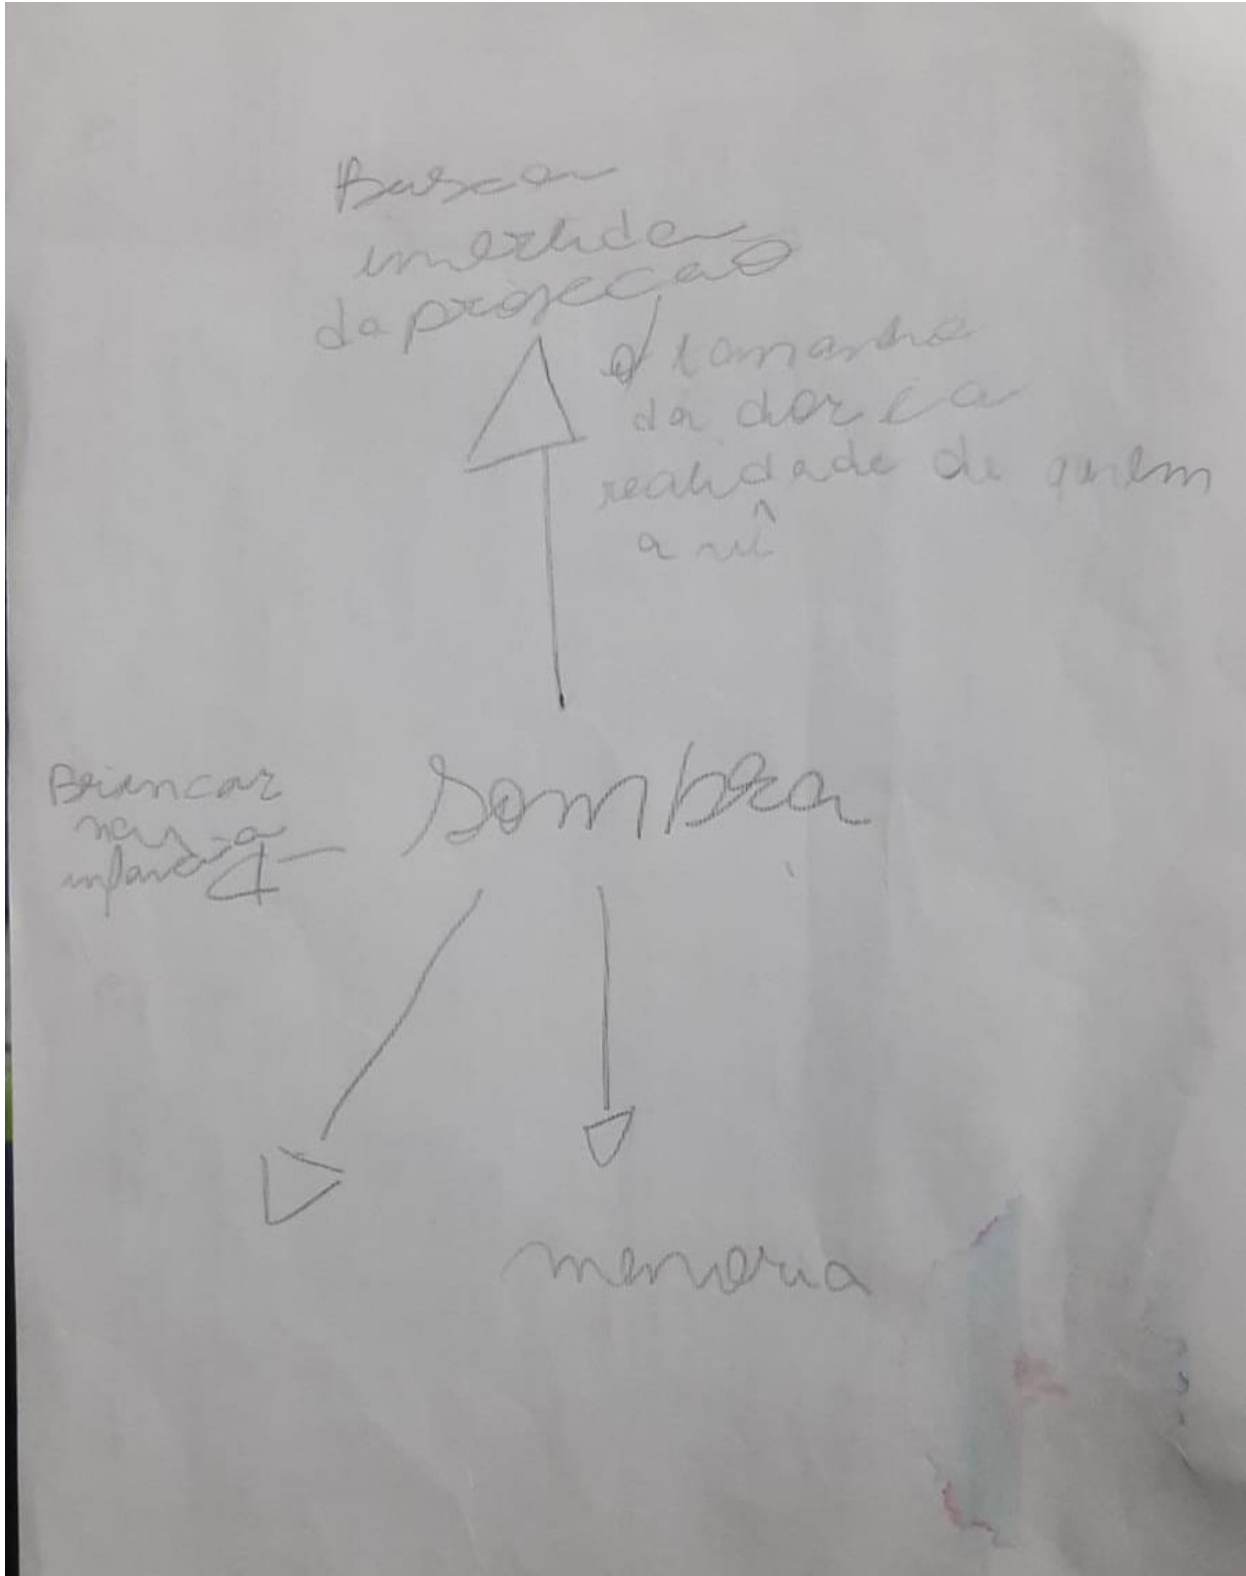 Busca
invertida
da projeção
o tamanho
da dor é a
realidade de quem
a vê
Brincar
na
infancia
Sombra
memoria